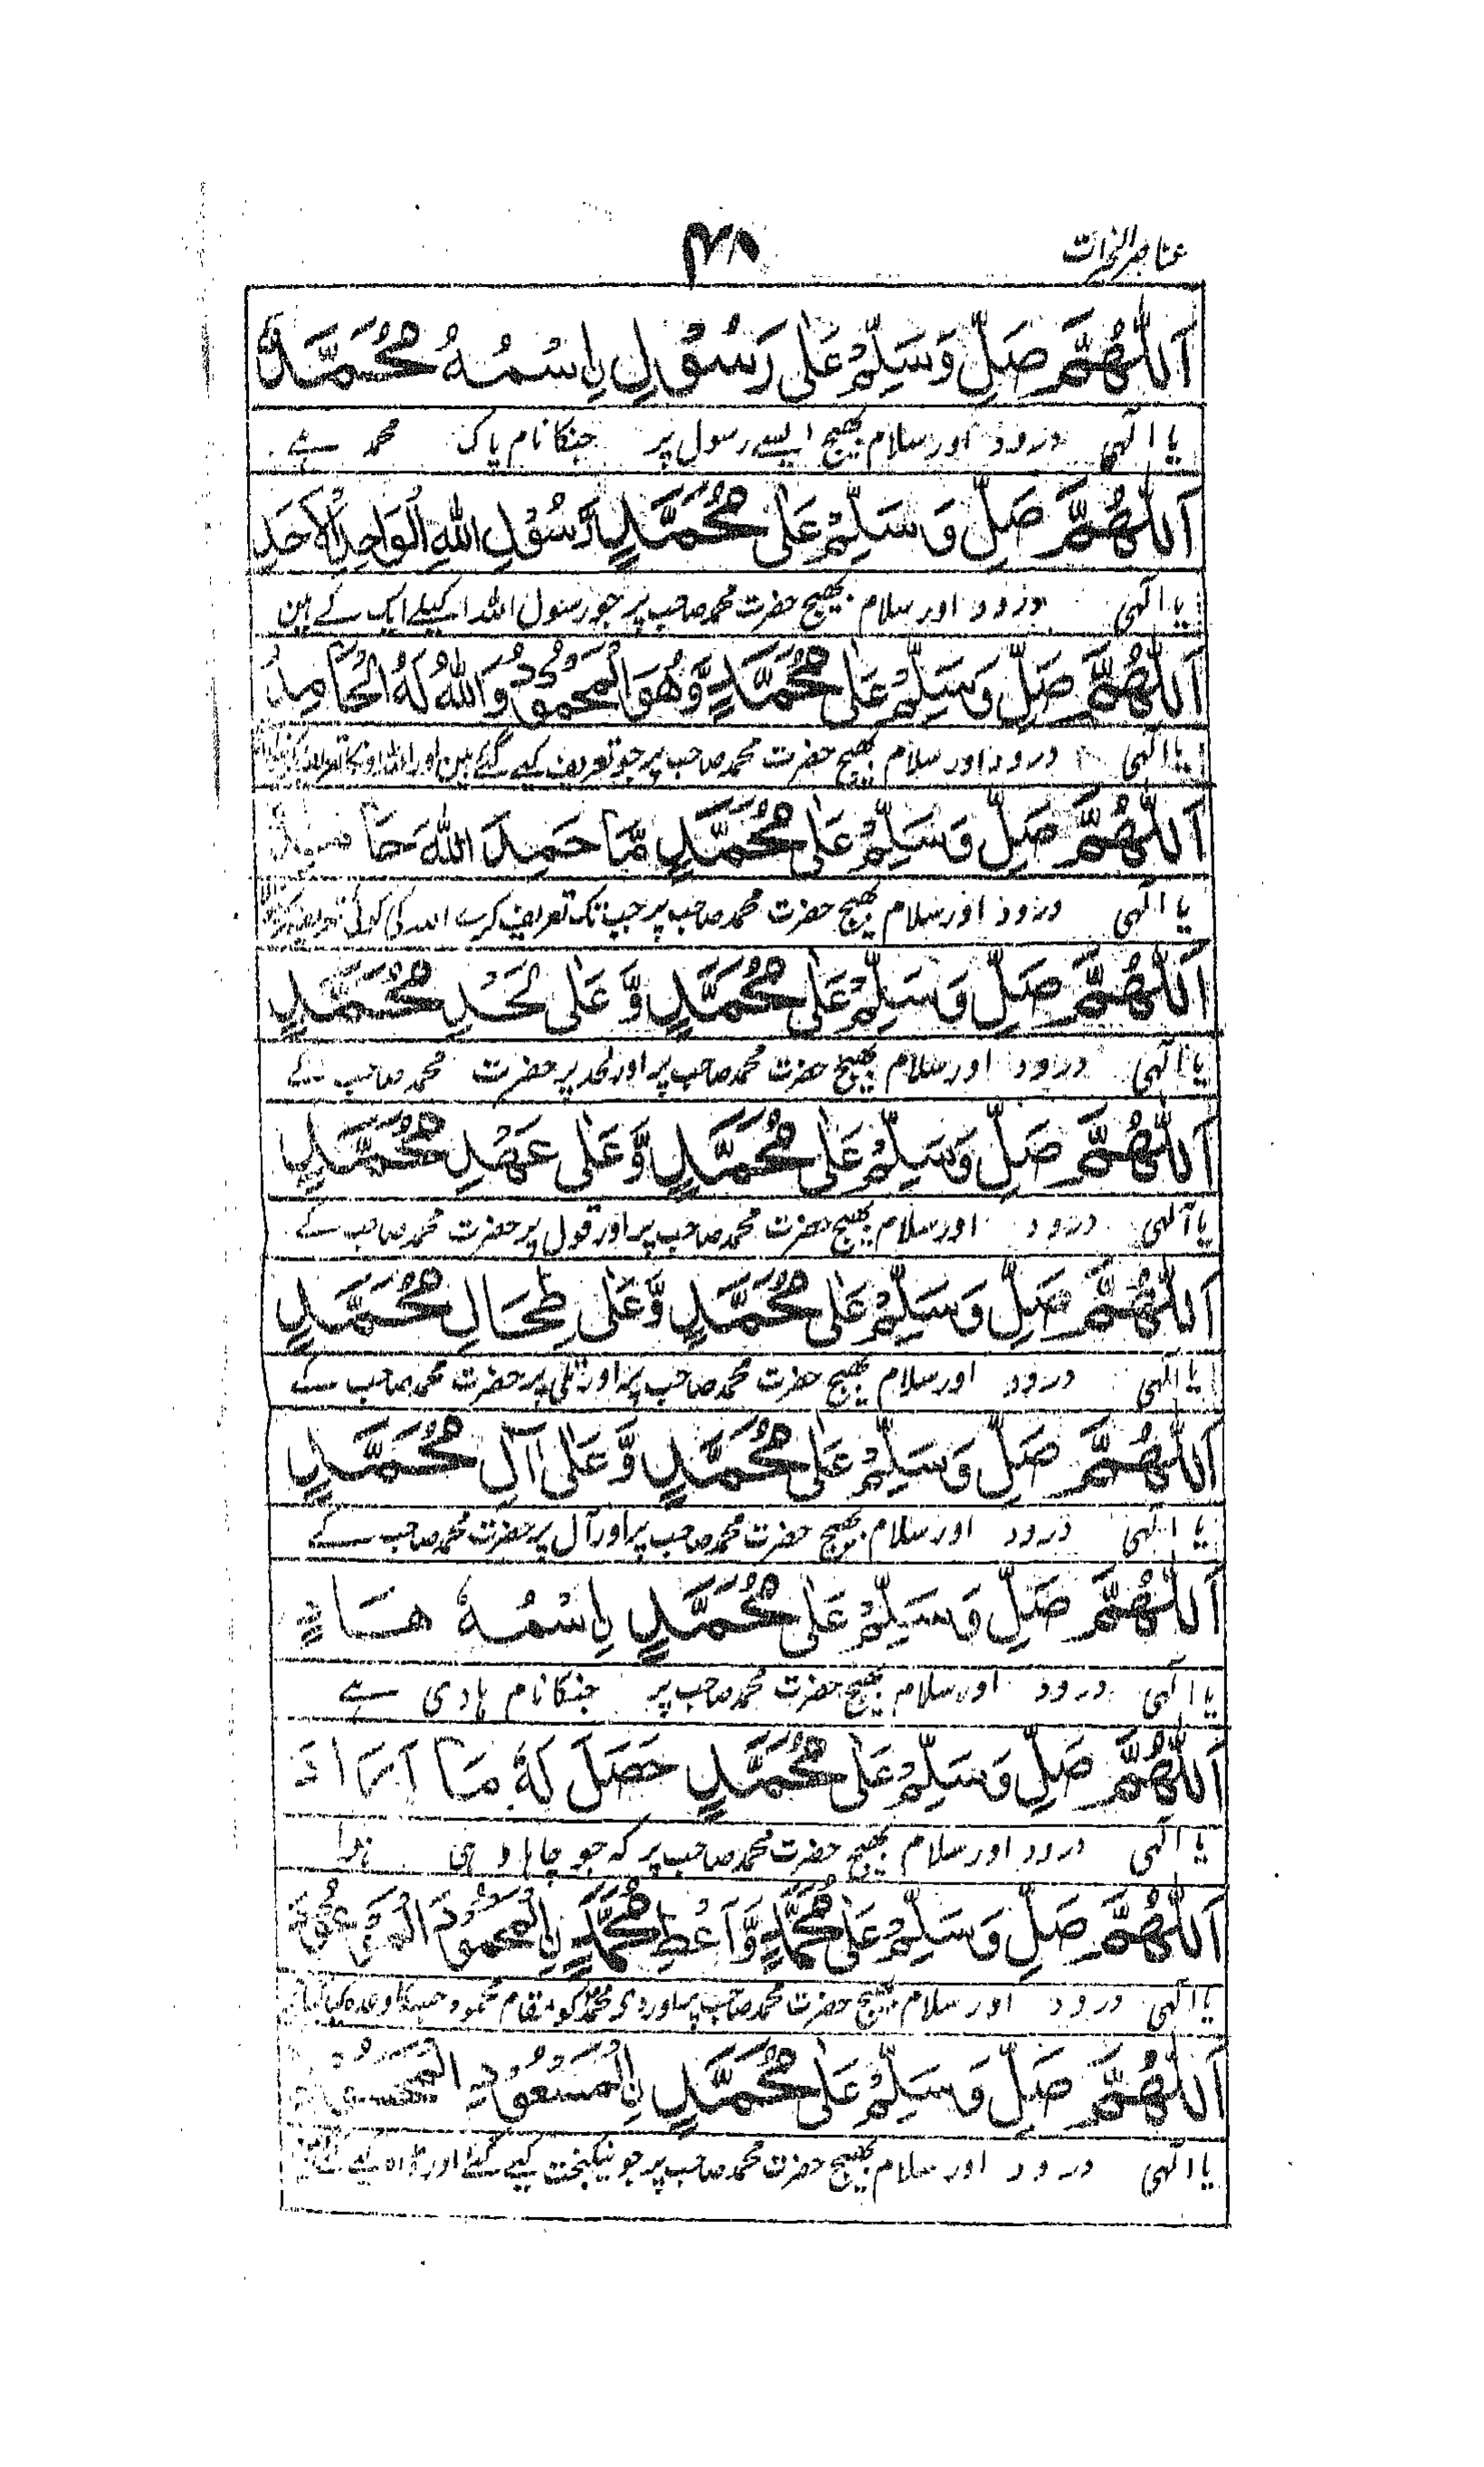 عناصر الخیرات
اَللّٰهُمَّ صَلِّ وَسَلِّمْ عَلٰی رَسُوْلِ نِاسْمُهُ مُحَمَّدٌ
یا الٰہی درود اور سلام بھیج ایسے رسول پر جنکا نام پاک محمد ہے
اَللّٰهُمَّ صَلِّ وَسَلِّمْ عَلٰی مُحَمَّدٍ رَّسُوْلِ اللهِ الْوَاحِدِ الْاَحَدِ
یا الٰہی درود اور سلام بھیج حضرت محمد صاحب پر جو رسول اللہ اکیلے ایک کے ہین
اَللّٰهُمَّ صَلِّ وَسَلِّمْ عَلٰی مُحَمَّدٍ وَّهُوَ الْمَحْمُوْدُ وَاللهُ لَهُ الْحَامِدُ
یا الٰہی درود اور سلام بھیج حضرت محمد صاحب پر جو تعریف کیے گئے ہین اور اللہ اونکا
اَللّٰهُمَّ صَلِّ وَسَلِّمْ عَلٰی مُحَمَّدٍ مَّا حَمِدَ اللهَ حَامِدٌ
یا الٰہی درود اور سلام بھیج حضرت محمد صاحب پر جب تک تعریف کرے اللہ کی کوئی تعریف
اَللّٰهُمَّ صَلِّ وَسَلِّمْ عَلٰی مُحَمَّدٍ وَّعَلٰی لَحْدِ مُحَمَّدٍ
یا الٰہی درود اور سلام بھیج حضرت محمد صاحب پر اور لحد پر حضرت محمد صاحب کے
اَللّٰهُمَّ صَلِّ وَسَلِّمْ عَلٰی مُحَمَّدٍ وَّعَلٰی عَهْدِ مُحَمَّدٍ
یا الٰہی درود اور سلام بھیج حضرت محمد صاحب پر اور قول پر حضرت محمد صاحب کے
اَللّٰهُمَّ صَلِّ وَسَلِّمْ عَلٰی مُحَمَّدٍ وَّعَلٰی طِحَالِ مُحَمَّدٍ
یا الٰہی درود اور سلام بھیج حضرت محمد صاحب پر اور تلی پر حضرت محمد صاحب کے
اَللّٰهُمَّ صَلِّ وَسَلِّمْ عَلٰی مُحَمَّدٍ وَّعَلٰی اٰلِ مُحَمَّدٍ
یا الٰہی درود اور سلام بھیج حضرت محمد صاحب پر اور آل پر حضرت محمد صاحب کے
اَللّٰهُمَّ صَلِّ وَسَلِّمْ عَلٰی مُحَمَّدٍ نِاسْمُهٗ هَادٍ
یا الٰہی درود اور سلام بھیج حضرت محمد صاحب پر جنکا نام ہادی ہے
اَللّٰهُمَّ صَلِّ وَسَلِّمْ عَلٰی مُحَمَّدٍ حَصَلَ لَهٗ مَا اَرَادَ
یا الٰہی درود اور سلام بھیج حضرت محمد صاحب پر کہ جو چاہا وہی ہوا
اَللّٰهُمَّ صَلِّ وَسَلِّمْ عَلٰی مُحَمَّدٍ وَّاَعْطِ مُحَمَّدَ نِالْمَحْمُوْدَ الْمَوْعُوْدَ
یا الٰہی درود اور سلام بھیج حضرت محمد صاحب پر اور دی محمد کو مقام محمود جسکا وعدہ کیا گیا
اَللّٰهُمَّ صَلِّ وَسَلِّمْ عَلٰی مُحَمَّدِ نِالْمَسْعُوْدِ
یا الٰہی درود اور سلام بھیج حضرت محمد صاحب پر جو نیکبخت کیے گئے اور